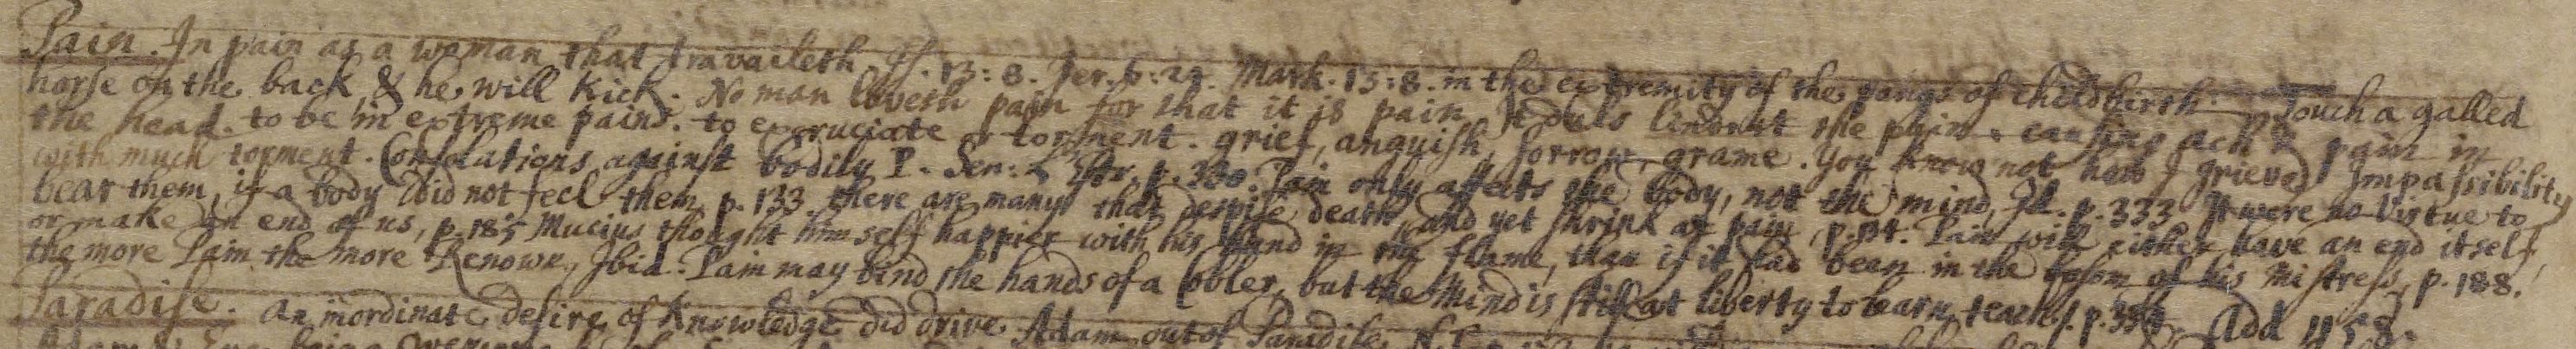 Pain. In pain as a woman that travaileth. Is. 13:8. Jer. 6:24. Mark. 13:8. in the extremity of the pangs of childbirth. Touch a galled
horse on the back, & he will kick. No man loveth pain for that it is pain. It duls the pain. causing ach & pain in
the head. to be in extreme paine. to excruciate & torment. grief, anguish, sorrow, grame. You know not how I grieve. Impassibility
with much torment. Consolations against bodily P. Sen: p. 330. Pain only affects the body, not the mind, Id. p. 333. It were no Virtue to
bear them, if a body did not feel them, p. 133. there are many that despise death, and yet shrink at pain p. Pain will either have an end itself,
or make an end of us, p. 185 Mucius thought himself happier with his hand in the flame, than if it had been in the bosom of his Mistress, p. 188.
the more Pain the more Renown, Ibid. Pain may bind the hands of a Cobler, but the Mind is still at liberty to learn, teach, p. Add 458.
Paradise. An inordinate desire of Knowledge did drive Adam out of Paradise.
Adam